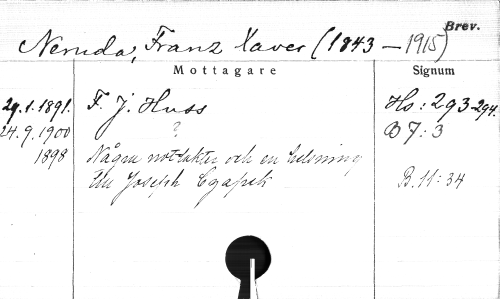 Brev.
Neruda, Franz Xaver (1843 – 1915)
Mottagare
Signum
29.1.1891. F. J. Huss Hs: 293-294.
24.9.1900 ? B 7:3
1898 Några nottakter och en helsning
till Joseph Czapek B.11:34